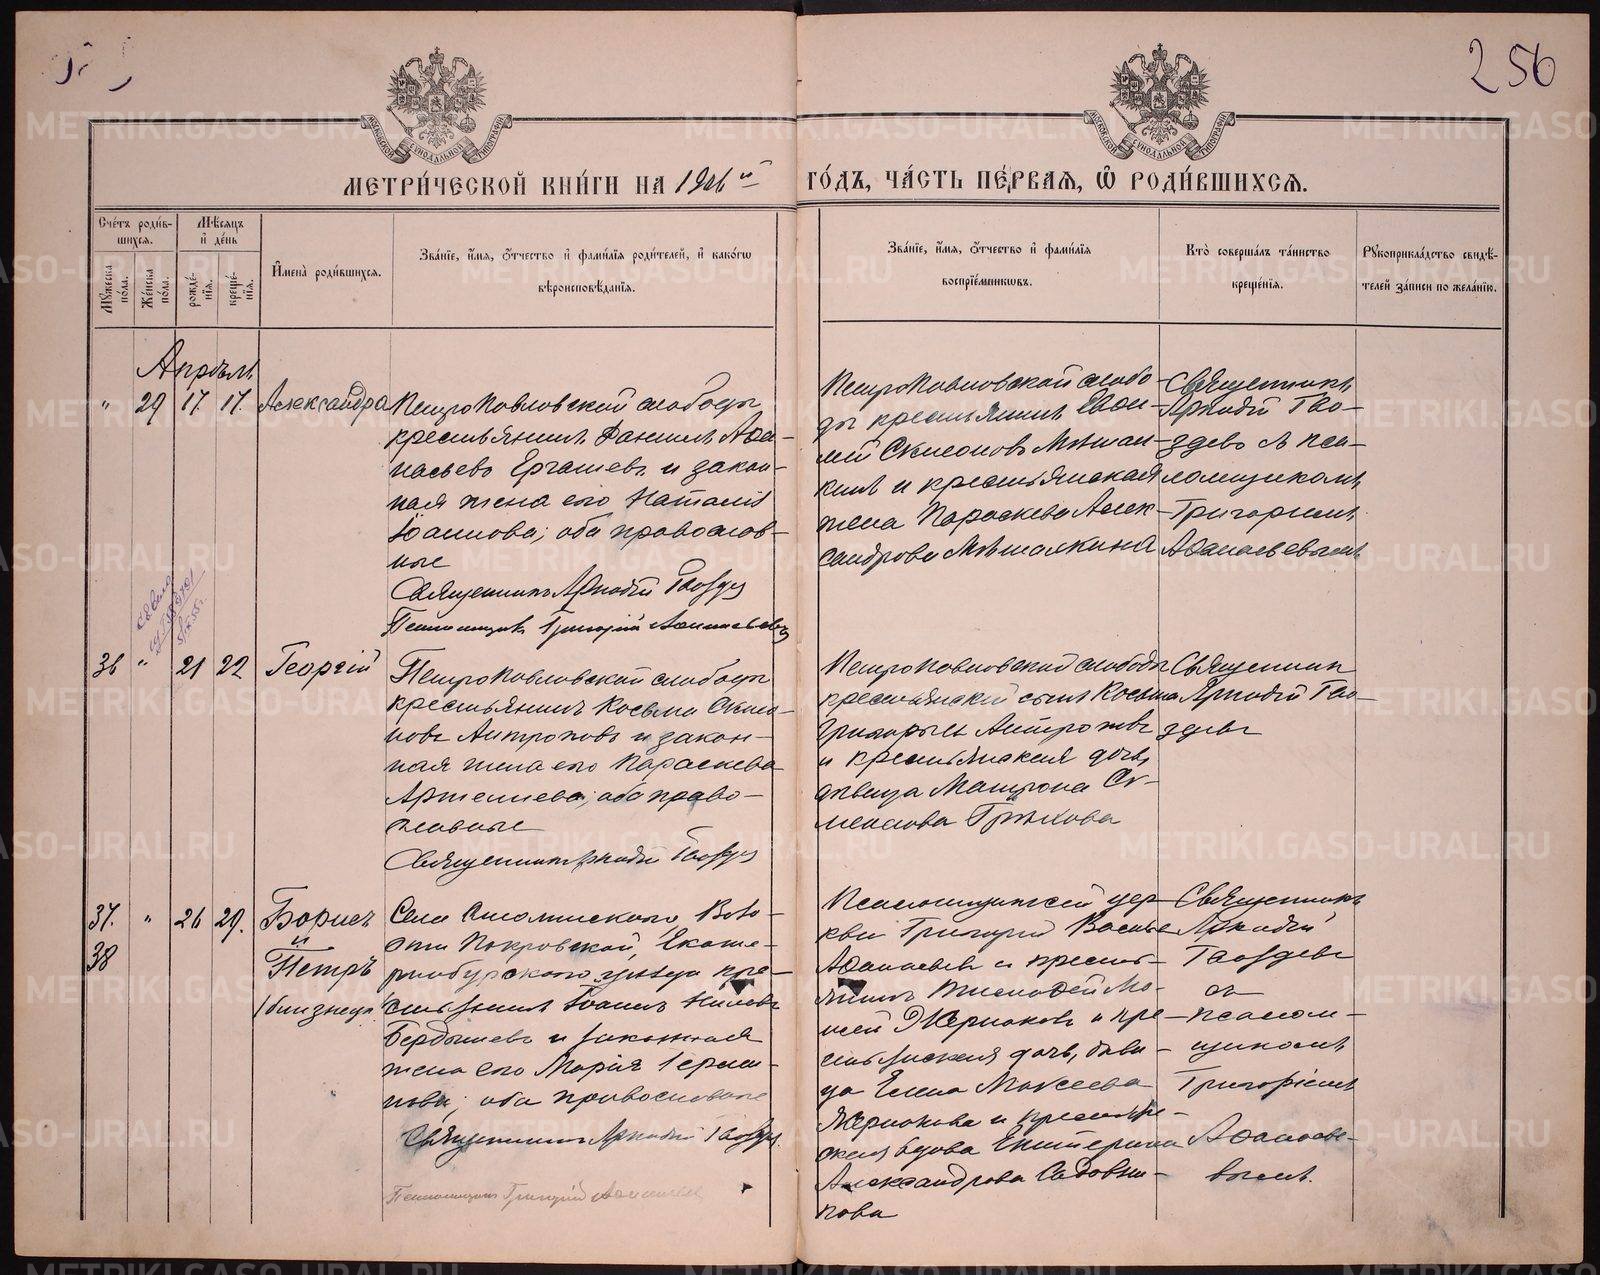 256
МОСКОВСКОЙ СУНОДАЛЬНОЙ ТИПОГРАФІИ
МОСКОВСКОЙ СУНОДАЛЬНОЙ ТИПОГРАФІИ
МЕТРИ́ЧЕСКОЙ КНИ́ГИ НА 1906й ГО́ДЪ, ЧА́СТЬ ПЕ́РВАЯ, Ѡ РОДИ́ВШИХСЯ.
Сче́тъ роди́вшихся.
Мужеска по́ла.
Же́нска по́ла.
Мѣ́сяцъ и де́нь
рожде́нія.
креще́нія.
И҆мена̀ роди́вшихся.
Зва́ніе, и҆́мя, ѻ҆́тчество и҆ фами́лія роди́телей, и҆ како́гѡ
вѣроисповѣ́данія.
Зва́ніе, и҆́мя, ѻ҆́тчество и҆ фами́лія
воспріе́мникѡвъ.
Кто̀ соверша́лъ та́инство
креще́нія.
Рукоприкла́дство свидѣ́-
телей за́писи по жела́нію.
Апрѣль
" 29 17. 17. Александра
ПетроПавловской слободы
крестьянинъ Даніилъ Афа-
насьевъ Ергашевъ и закон-
ная жена его Наталія
Іоаннова; оба православ-
ные
Священникъ Аркадій Гвоздевъ
Псаломщикъ Григорій Афанасьевъ
ПетроПавловской слобо-
ды крестьянинъ Евѳи-
мій Симеоновъ Мѣшал-
кинъ и крестьянская
жена Параскева Алек-
сандрова Мѣшалкина
Священникъ
Аркадій Гво-
здевъ съ пса-
ломщикомъ
Григоріемъ
Афанасьевымъ
36 " 21 22 Георгій
ПетроПавловской слободы
крестьянинъ Косьма Симео-
новъ Антроповъ и закон-
ная жена его Параскева
Артемиева; оба право-
славные
Священникъ Аркадій Гвоздевъ
ПетроПавловской слободы
крестьянскій сынъ Косьма
Григорьевъ Антроповъ
и крестьянская дочь,
дѣвица Матрона Си-
меонова
Священникъ
Аркадій Гво-
здевъ
37. " 26 29. Борисъ
и
38 Петръ
/близнецы/
Села Смолинскаго, Воло-
сти Покровской, Екате-
ринбургскаго уѣзда кре-
стьянинъ Іоаннъ Ниловъ
Бердышевъ и законная
жена его Марія Герма-
нова; оба православные
Священникъ Аркадій Гвоздевъ
Псаломщикъ Григорій Афанасьевъ
Псаломщикъ сей цер-
кви Григорій Василье
Афанасьевъ и кресть-
янинъ Мо-
исей и кре-
стьянская дочь, дѣви-
ца Елена Моисеева
и крестьян-
ская вдова Екатерина
Александрова Садовни-
кова
Священникъ
Аркадій
Гвоздевъ
съ
псалом-
щикомъ
Григоріемъ
Афанасье-
вымъ.
METRIKI.GASO-URAL.RU